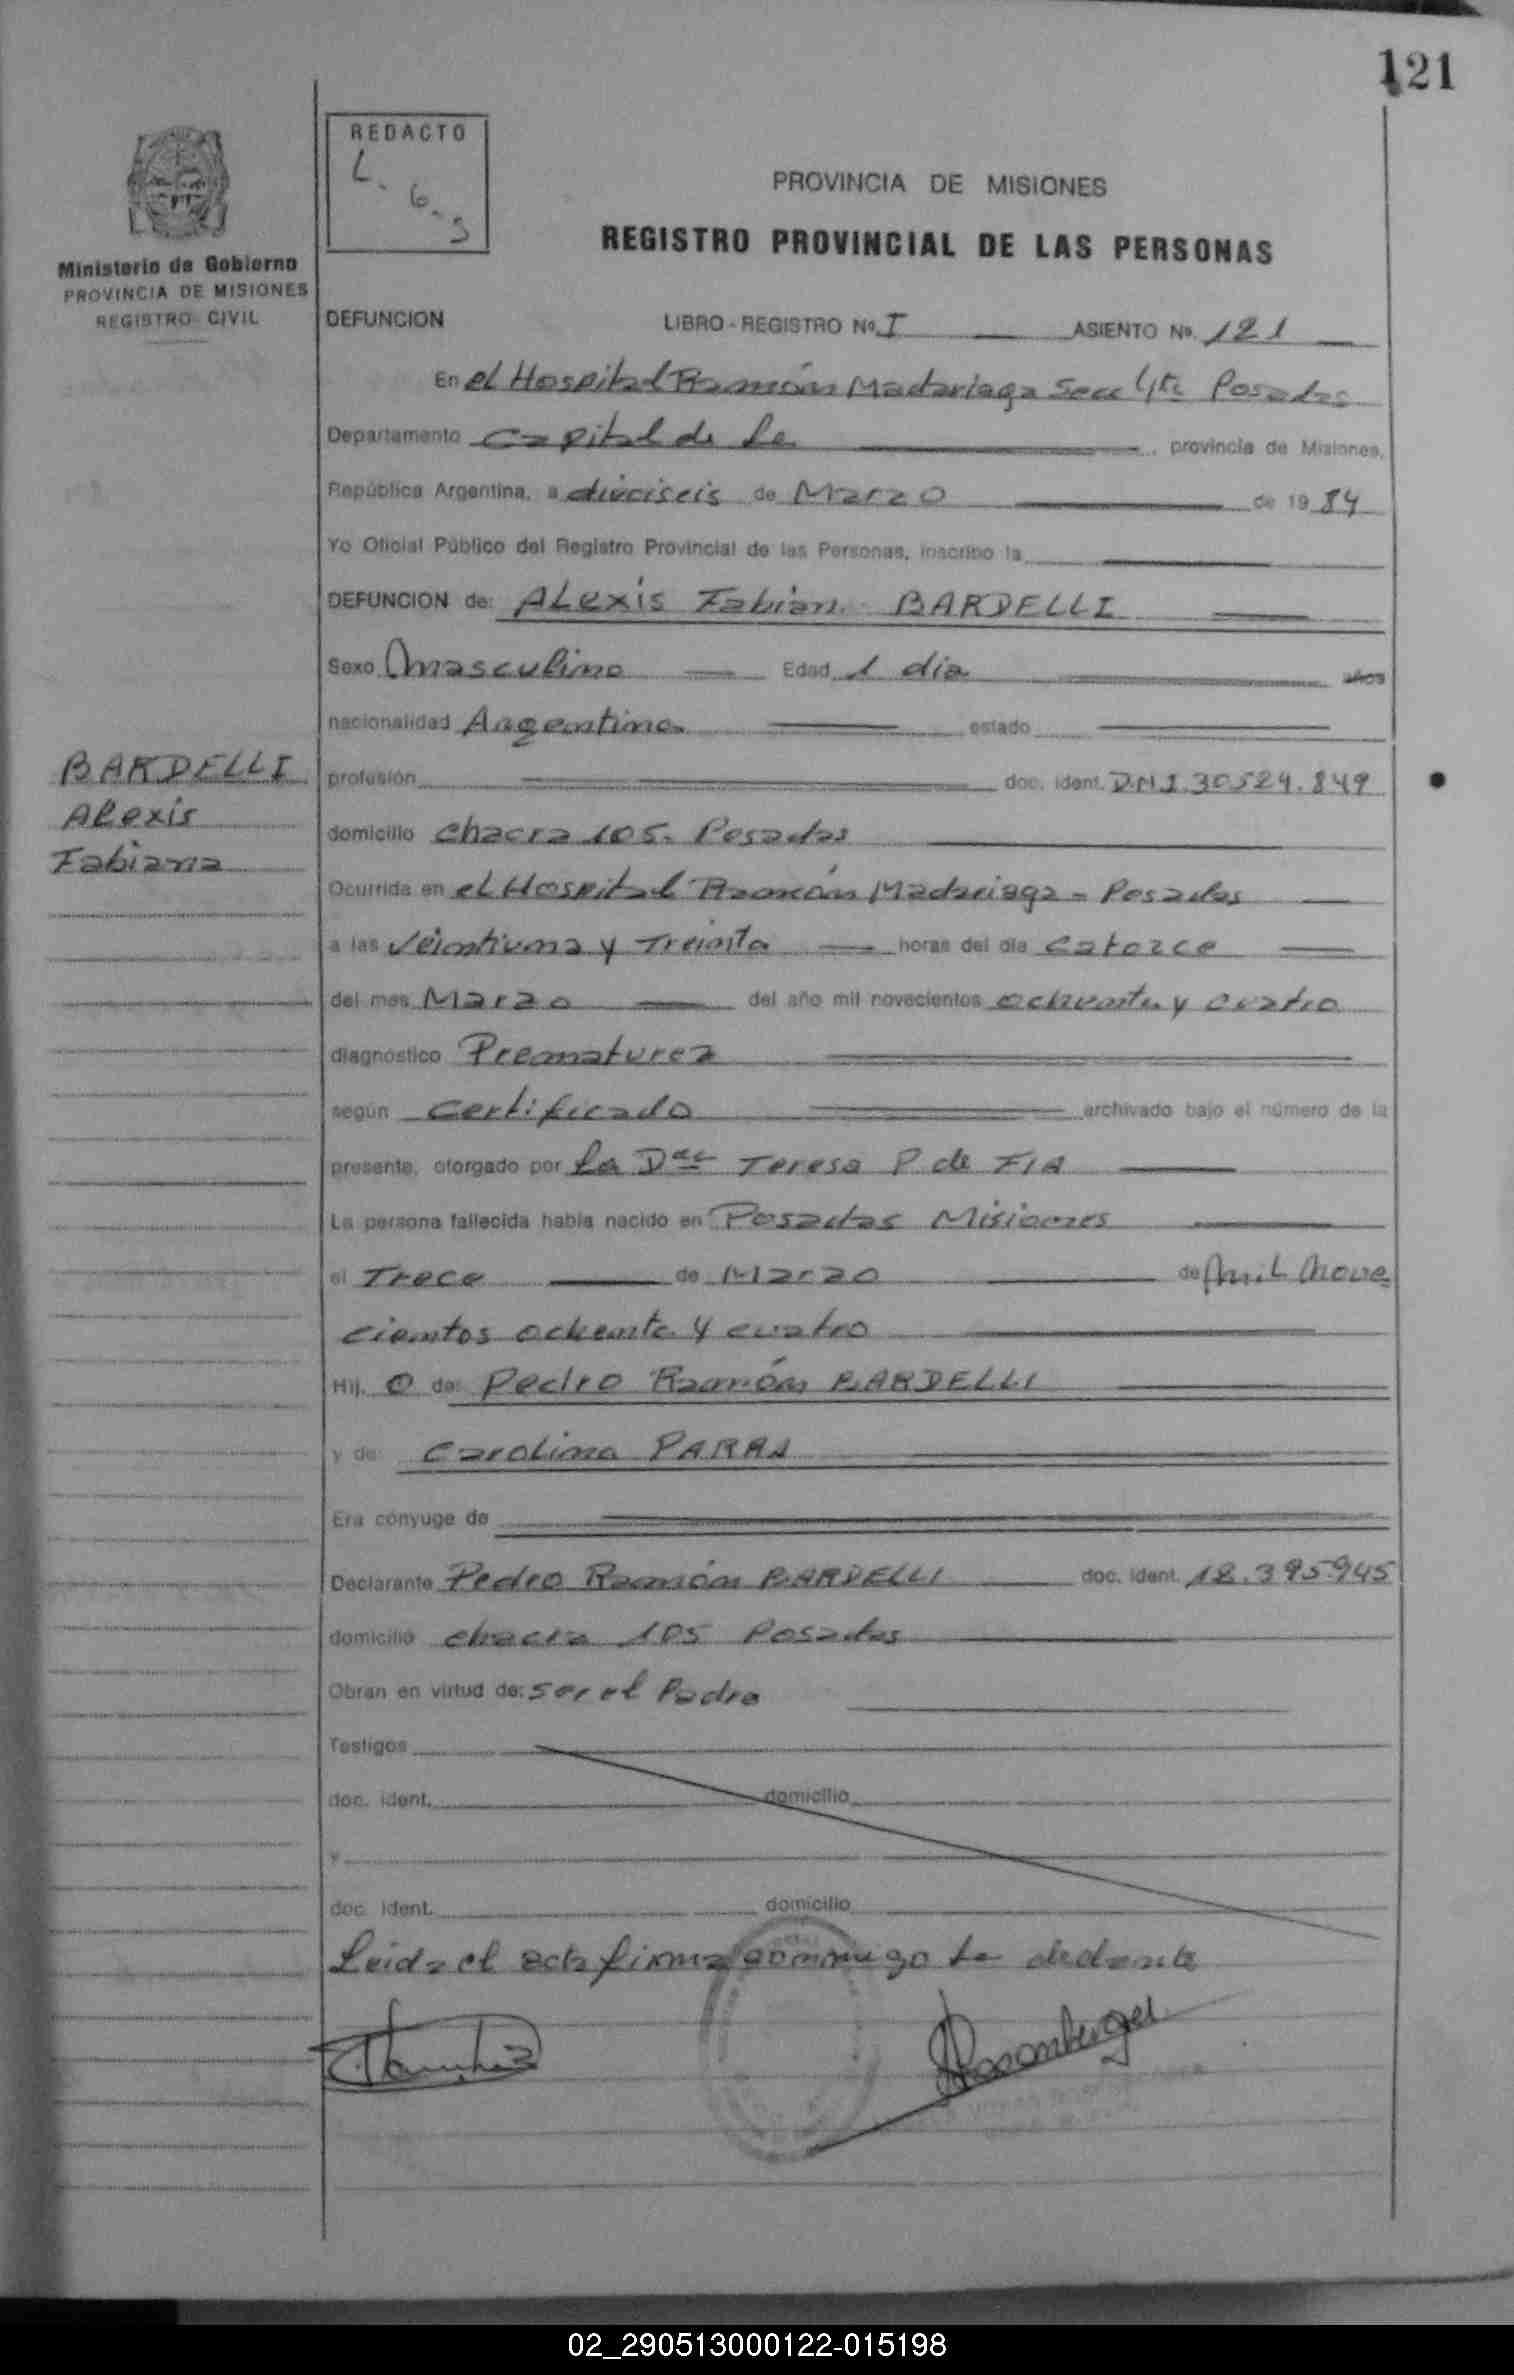 121
REDACTO
L. G. S
Ministerio de Gobierno
PROVINCIA DE MISIONES
REGISTRO CIVIL
PROVINCIA DE MISIONES
REGISTRO PROVINCIAL DE LAS PERSONAS
DEFUNCION LIBRO - REGISTRO Nº I ASIENTO Nº. 121
En el Hospital Ramón Madariaga Secc 4ta Posadas
Departamento Capital de La provincia de Misiones,
República Argentina, a dieciseis de Marzo de 19 84
Yo Oficial Público del Registro Provincial de las Personas, inscribo la
DEFUNCION de: ALexis Fabian BARDELLI
Sexo Masculino Edad 1 dia años
nacionalidad Argentina estado
BARDELLI
Alexis
Fabiana
profesión doc. ident. D.N.I. 30524.849
domicilio chacra 105. Posadas
Ocurrida en el Hospital Ramón Madariaga - Posadas
a las Veintiuna y Treinta horas del día catorce
del mes Marzo del año mil novecientos ochenta y cuatro
diagnóstico Prematurez
según certificado archivado bajo el número de la
presente, otorgado por La Dra Teresa P. de FIA
La persona fallecida había nacido en Posadas Misiones
el Trece de Marzo de Mil Nove
cientos ochenta y cuatro
Hij. O de: Pedro Ramón BARDELLI
y de: Carolina PARRA
Era cónyuge de
Declarante Pedro Ramón BARDELLI doc. ident. 18.395945
domicilio chacra 105 Posadas
Obran en virtud de: ser el Padre
Testigos
doc. ident. domicilio
y
doc. ident. domicilio
Leida el acta firma conmigo La declarante
02_290513000122-015198